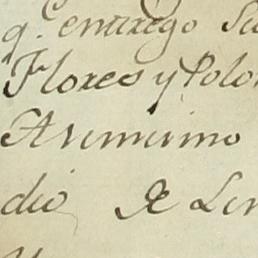 q.e entrego Su
Flores y Polo
Asimismo
dio de Ler